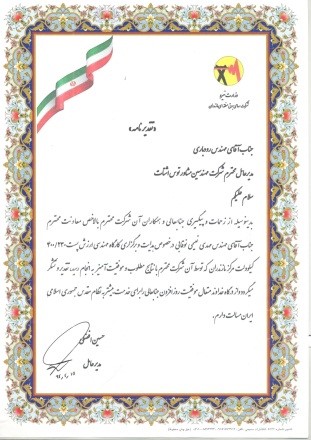 وزارت نیرو
شرکت سهامی برق منطقه‌ای مازندران
«تقدیرنامه»
جناب آقای مهندس رودباری
مدیرعامل محترم شرکت مهندسین مشاور توس
سلام علیکم
بدینوسیله از زحمات و پیگیری جنابعالی و همکاران آن شرکت محترم بالاخص معاونت محترم
جناب آقای مهندس مهدی در خصوص هدایت و برگزاری کارگاه مهندسی ارزش پست ۴۰۰/۲۳۰
کیلوولت مرکز مازندران که توسط آن شرکت محترم با نتایج مطلوب و موفقیت آمیز به انجام رسید، تقدیر و تشکر
میگردد و از درگاه خداوند متعال موفقیت روزافزون جنابعالی را برای خدمت بیشتر به نظام مقدس جمهوری اسلامی
ایران مسألت دارم.
حسین افضلی
مدیرعامل